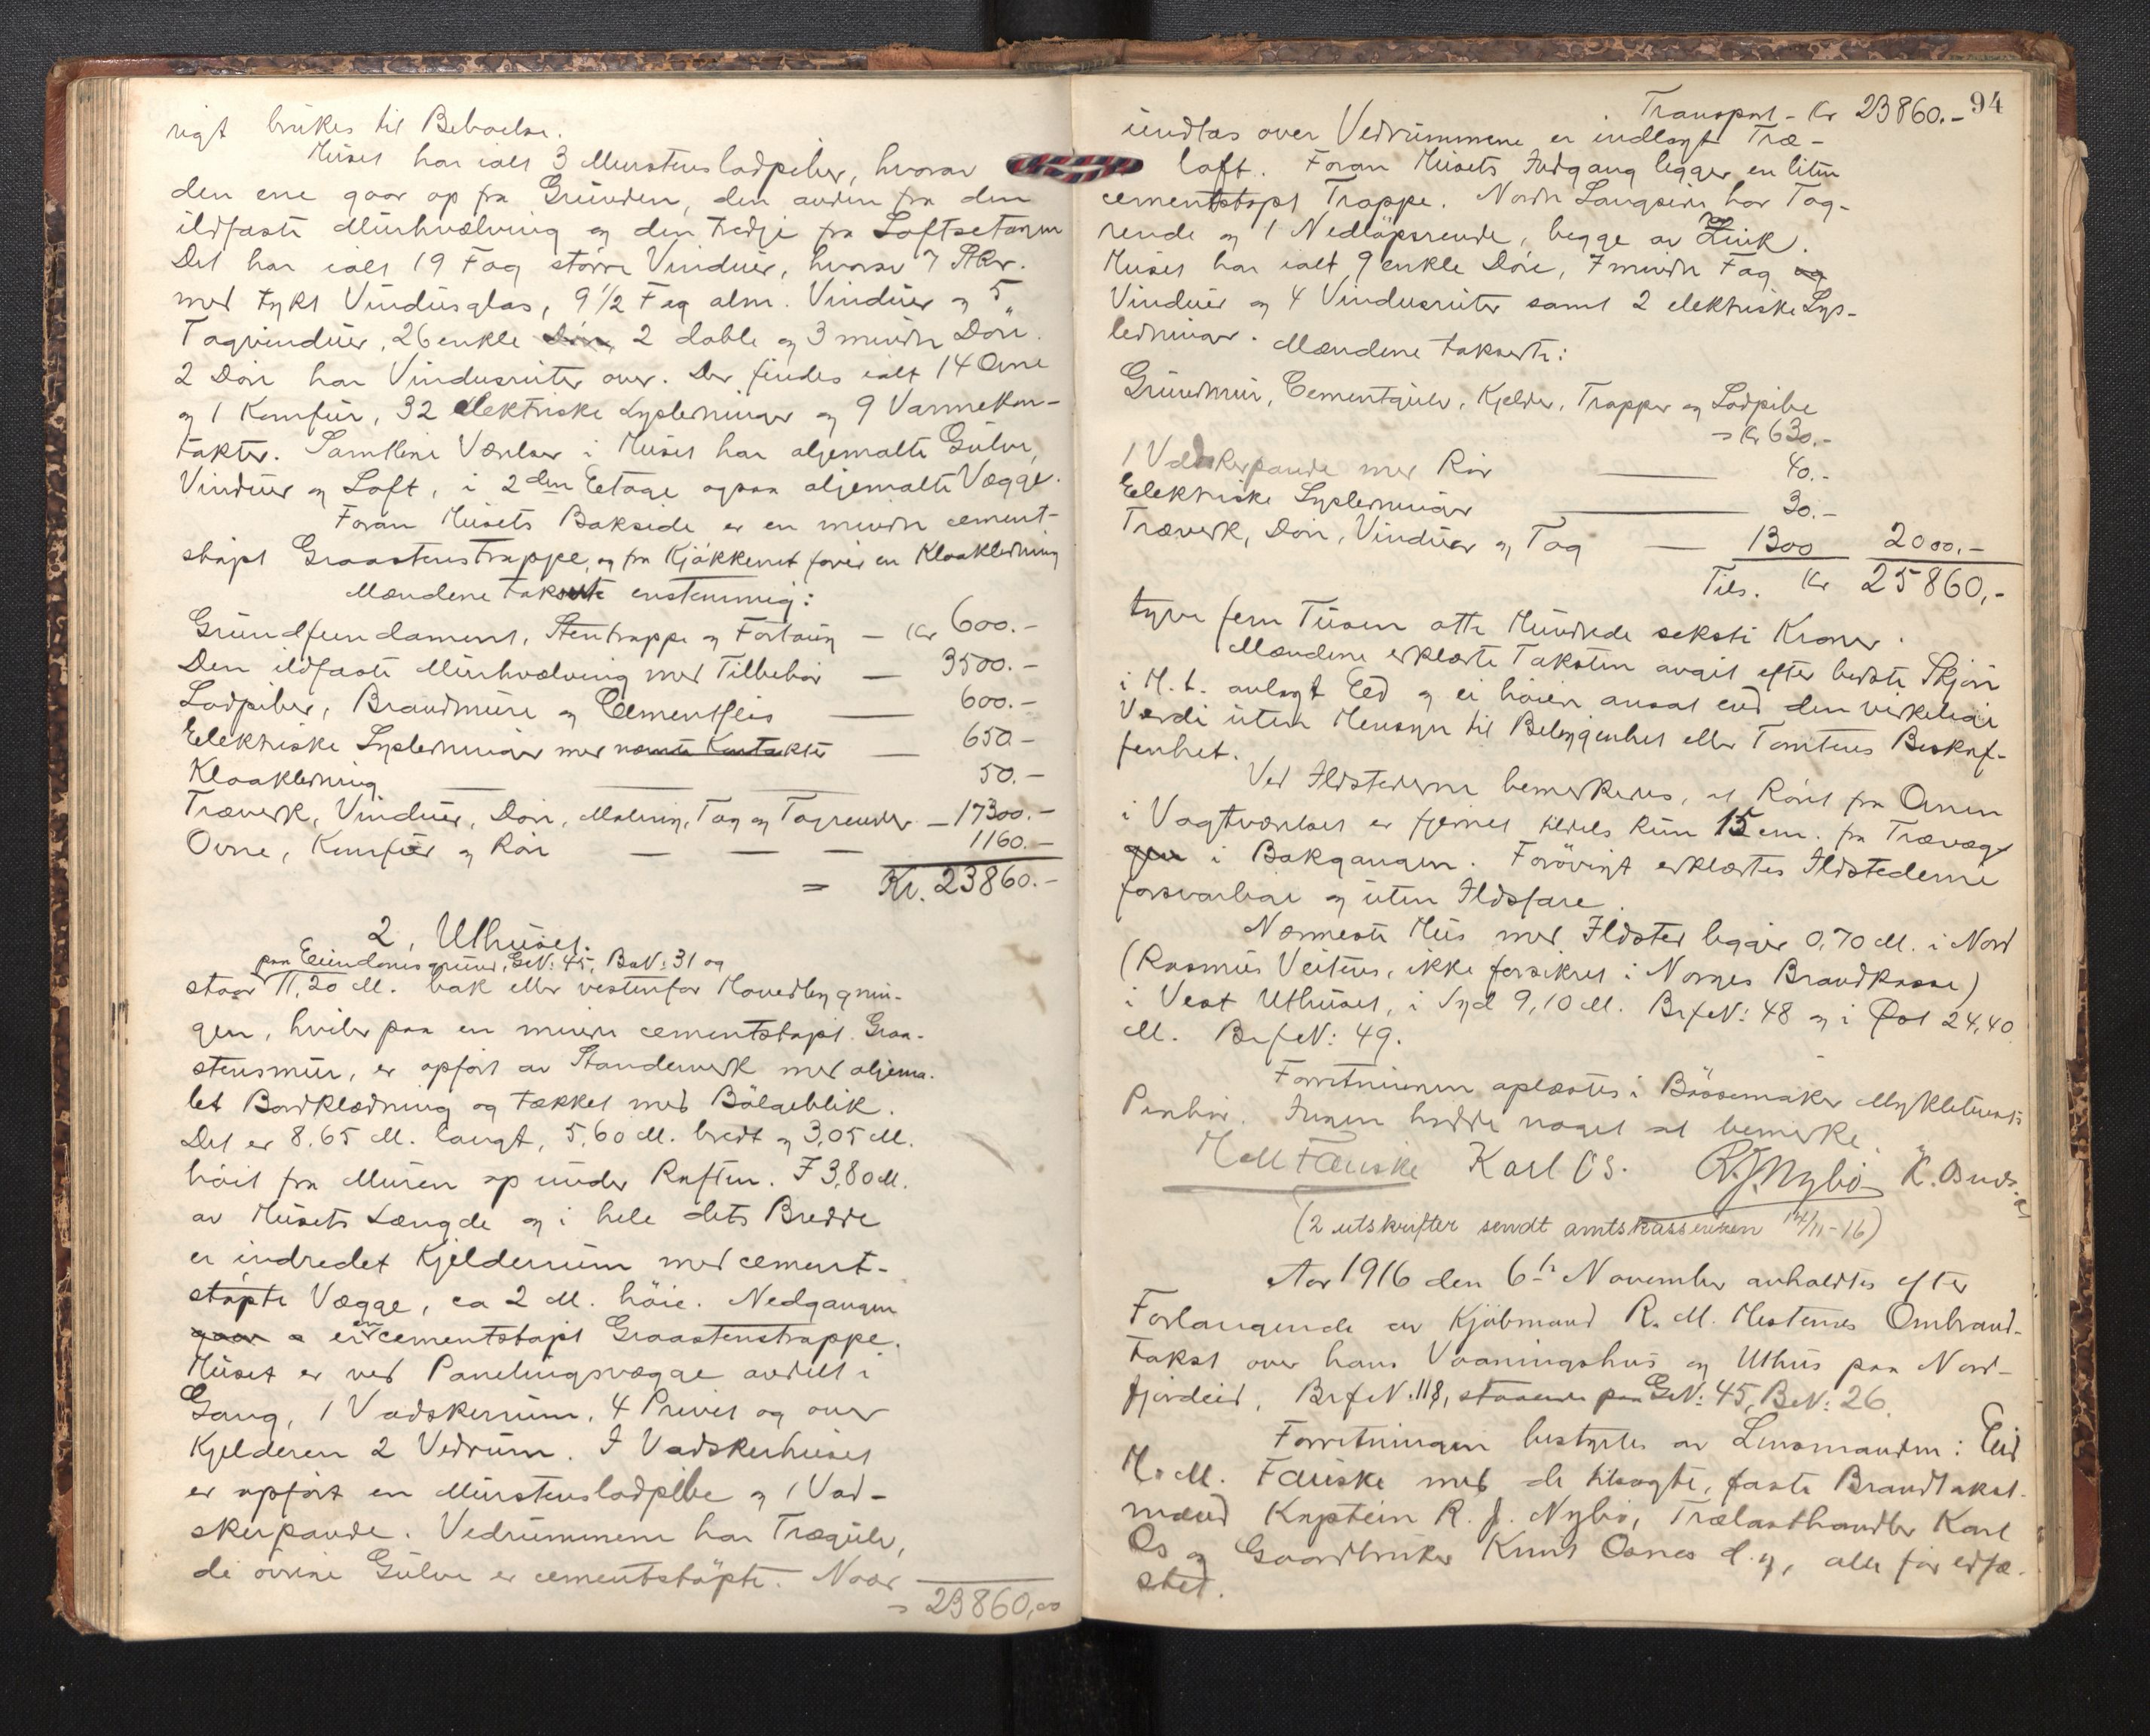 rigt brukes til Beboelse.
Huset har ialt 3 Murstensladpiber, hvorav
den ene gaar op fra Grunden, den anden fra den
ildfaste Murhvælving og den tredje fra Loftsetagen
Det har ialt 19 Fag större Vinduer, hvorav 7 Stkr.
med tykt Vindusglas, 9 1/2 Fag alm. Vinduer og 5
Tagvinduer, 26 enkle Döre, 2 doble og 3 mindre Döre.
2 Döre har Vindusruiter over. Der findes ialt 14 Ovne
og 1 Komfur, 32 elektriske Lysledninger og 9 Varmekon-
takter. Samtlige Værelser i Huset har oljemalte Gulve,
Vinduer og Loft, i 2den Etage ogsaa oljemalte Vægge.
Foran Husets Bakside er en mindre cement-
støpt Graastenstrappe, og fra Kjøkkenet fører en Kloakledning
Mændene takserte enstemmig:
Grundfundament, Stentrappe og Fortoug — Kr 600.-
Den ildfaste Murhvælving med Tilbehör — 3500.-
Ladpiber, Brandmure og Cementflis — 600.-
Elektriske Lysledninger med Kontakter — 650-
Kloakledning — 50.-
Træverk, Vinduer, Döre, Maling, Tag og Tagrender — 17300.-
Ovne, Komfür og Rör — — — 1160.-
= Kr. 23860.-
2, Uthuset.
paa Eiendomsgrund, G.N: 45, B.N: 31 og
staar 11,20 M. bak eller vestenfor Hovedbygnin-
gen, hviler paa en mindre cementstøpt Graa-
stensmur, er opført av Standerverk med oljema-
let Bordklædning og tækket med Bölgeblik.
Det er 8,65 M. langt, 5,60 M. bredt og 3,05 M.
höit fra Muren op under Raften. I 3,80 M.
av Husets Længde og i hele dets Bredde
er indredet Kjelderrum med cement-
støpte Vægge, ca 2 M. höie. Nedgangen
er en cementstøpt Graastenstrappe.
Huset er ved Panelingsvægge avdelt i
Gang, 1 Vadskerum, 4 Priver og over
Kjelderen 2 Vedrum. I Vadskerhuset
er opført en Murstensladpibe og 1 Vad-
skerpande. Vedrummene har Trægulv,
de övrige Gulve er cementstøpte. Noar
= 23860,00
94
Transport - Kr 23860.-
undtas over Vedrummene er indlagt Træ-
loft. Foran Husets Indgang ligger en liten
cementstøpt Trappe. Nordre Langside har Tag-
rende og 1 Nedlöpsrende, begge av Zink.
Huset har ialt 9 enkle Döre, 7 mindre Fag
Vinduer og 4 Vindusruiter samt 2 elektriske Lys-
ledninger. Mændene takserte:
Grundmur, Cementgulv, Kjelder, Trapper og Ladpibe
= Kr 630.-
1 Vadskerpande med Rör — 40.-
Elektriske Lysledninger — 30.-
Træverk, Döre, Vinduer og Tag — 1300 2000.-
Tils. Kr 25860,-
tyve fem Tusen otte Hundrede seksti Kroner.
Mændene erklærte Taksten avgit efter bedste Skjön
i H. t. avlagt Ed og ei höiere ansat end den virkelige
Værdi uten Hensyn til Beliggenhet eller Tomtens Beskaf-
fenhet.
Ved Ildstederne bemerkedes, at Röret fra Ovnen
i Vagtværelset er fjernet tildels kun 15 cm. fra Trævæg-
gen i Bakgangen. Forövrigt erklærtes Ildstederne
forsvarlige og uten Ildsfare.
Nærmeste Hus med Ildsted ligger 0,70 M. i Nord
(Rasmus Veiteus, ikke forsikret i Norges Brandkasse)
i Vest Uthuset, i Syd 9,10 M. Brf.N: 48 og i Øst 24,40
M. Brf.N: 49.
Forretningen oplæstes i Bössemaker Mykletuns
Paahör. Ingen hadde noget at bemerke.
H M Fauske Karl Os. R. J. Nybö K. Osnes
(2 utskrifter sendt amtskassereren 14/11-16)
Aar 1916 den 6te November avholdtes efter
Forlangende av Kjöbmand R. M. Hestenes Ombrand-
takst over hans Vaaningshus og Uthus paa Nord-
fjordeid, Brf.N. 118, staaende paa G.N: 45, B.N: 26.
Forretningen bestyrtes av Lensmanden i Eid
H. M. Fauske med de tilsagte, faste Brandtakst-
mænd Kaptein R. J. Nybö, Trælasthandler Karl
Os og Gaardbruker Knut Osnes d.y, alle för edfæ-
stet.